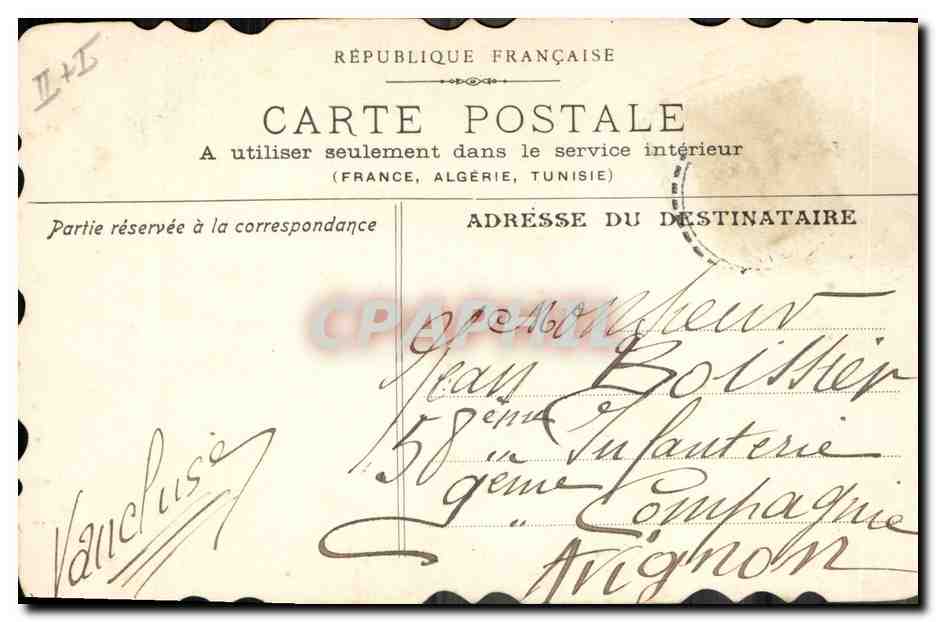 II + I
RÉPUBLIQUE FRANÇAISE
CARTE POSTALE
A utiliser seulement dans le service intérieur
(FRANCE, ALGÉRIE, TUNISIE)
Partie réservée à la correspondance
ADRESSE DU DESTINATAIRE
CPAPHIL
Monsieur
Jean Boissier
58ème Infanterie
9ème " Compagnie
Avignon
Vaucluse